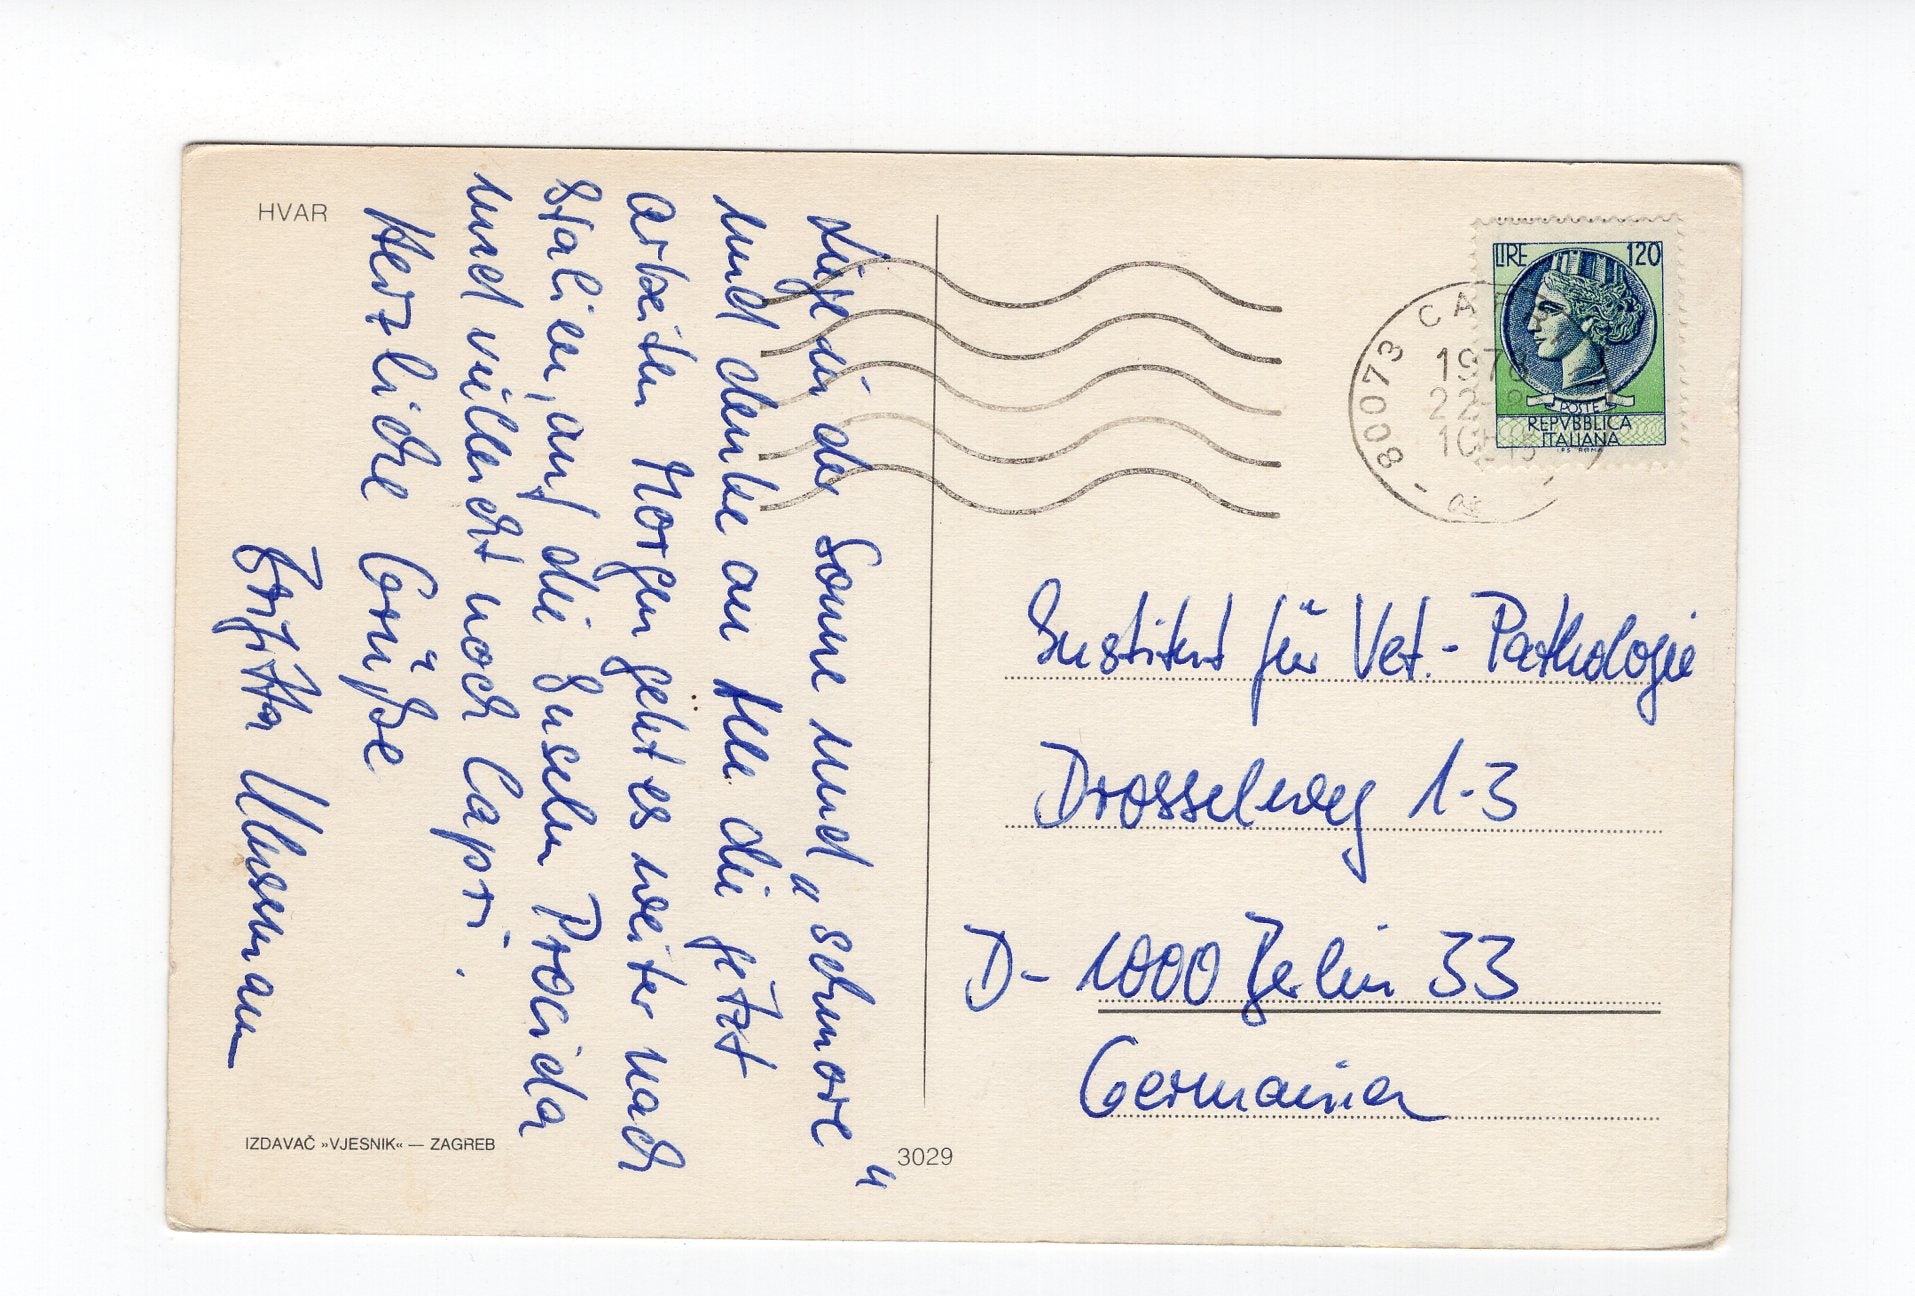 HVAR
Liege in der Sonne und „schmore“
und denke an alle die jetzt
arbeiten. Morgen geht es weiter nach
Italien, auf die Inseln Procida
und vielleicht noch Capri.
Herzliche Grüße
Brigitta
IZDAVAČ »VJESNIK« — ZAGREB
3029
LIRE 120
POSTE
REPVBBLICA
ITALIANA
I.P.S. ROMA
80073
22
Institut für Vet.-Pathologie
Drosselweg 1-3
D- 1000 Berlin 33
Germania